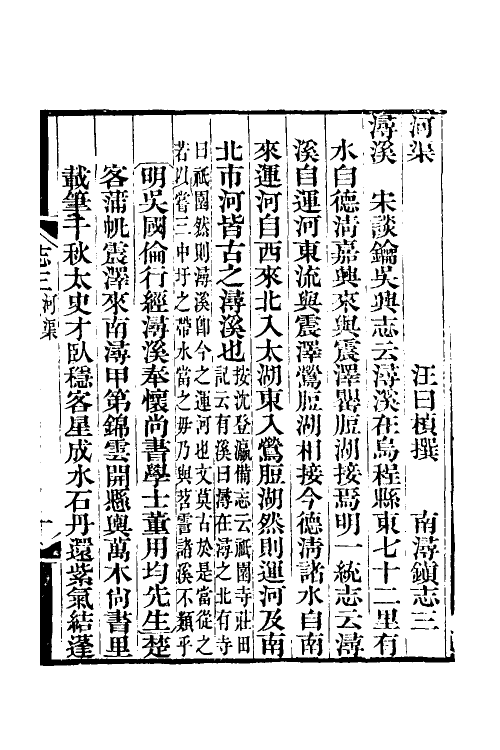 河渠　汪曰楨撰　南潯鎮志三
潯溪　宋談鑰吳興志云潯溪在烏程縣東七十二里有
水自德清嘉興來與震澤鶯脰湖接焉明一統志云潯
溪自運河東流與震澤鶯脰湖相接今德清諸水自南
來運河自西來北入太湖東入鶯脰湖然則運河及南
北市河皆古之潯溪也
按沈登瀛備志云祇園寺莊田
記云有溪曰潯在潯之北有寺
曰祇園然則潯溪卽今之運河也文莫古於是當從之
若以嘗三申圩之帶水當之毋乃與苕霅諸溪不類乎
明吳國倫行經潯溪奉懷尚書學士董用均先生楚
客蒲帆震澤來南潯甲第錦雲開懸輿萬木尙書里
載筆千秋太史才臥穩客星成水石丹還紫氣結蓬
志三河渠